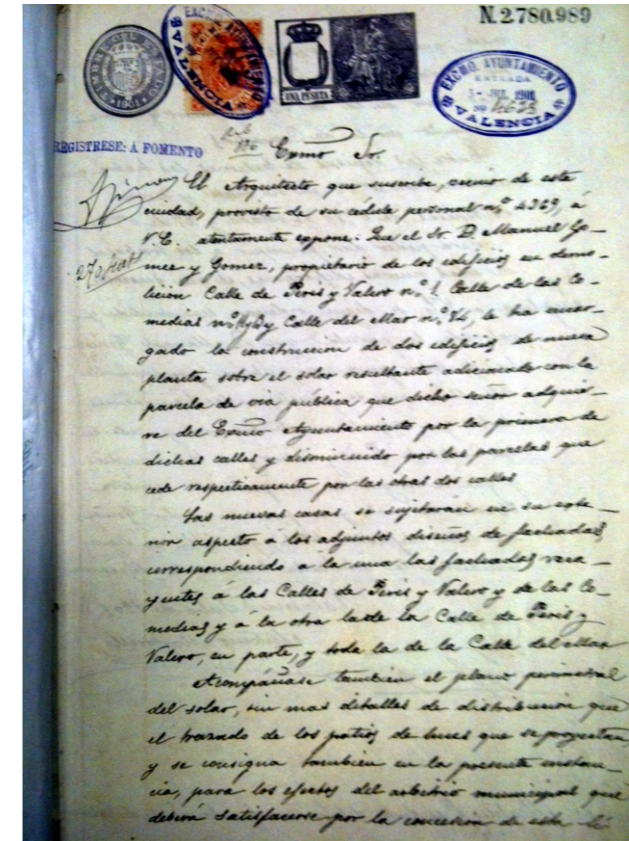 N. 2.780.989
TIMBRE DEL ESTADO
1901
EXCMO. AYUNTAMIENTO
VALENCIA
UNA PESETA
EXCMO. AYUNTAMIENTO
ENTRADA
5 - JUL. 1901
Nº 4623
VALENCIA
REGISTRESE: A FOMENTO
Exmo Sr.
El Arquitecto que suscribe, vecino de esta
ciudad, provisto de su cédula personal nº 4369, á
V.E. atentamente expone: Que el Sr. D. Manuel Go-
mez y Gomez, propietario de los edificios en demo-
lición Calle de Peris y Valero nº 1, Calle de las Co-
medias nº y Calle del Mar nº, le ha encar-
gado la construccion de dos edificios de nueva
planta sobre el solar resultante adicionado con la
parcela de via pública que dicho señor adquie-
re del Exmo Ayuntamiento por la primera de
dichas calles y disminuido por las parcelas que
cede respectivamente por las otras dos calles
Las nuevas casas se sujetarán en su exte-
rior aspecto á los adjuntos diseños de fachadas,
correspondiendo á la una las fachadas reca-
yentes á las Calles de Peris y Valero y de las Co-
medias y á la otra la de la Calle de Peris y
Valero, en parte, y toda la de la Calle del Mar
Acompáñase tambien el plano perimetral
del solar, sin mas detalles de distribucion que
el trazado de los patios de luces que se proyectan
y se consigna tambien en la presente instan-
cia, para los efectos del arbitrio municipal que
deberá satisfacerse por la concesion de esta li